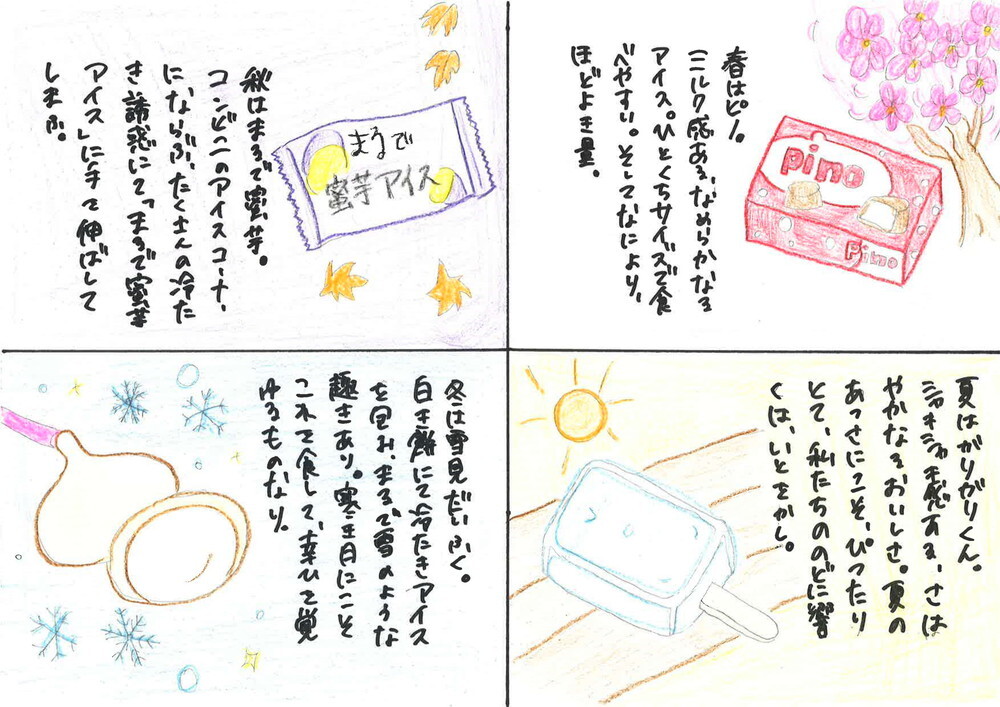 春はピノ。
ミルク感ある、なめらかなる
アイス。ひとくちサイズで食
べやすい。そしてなにより、
ほどよき量。
pino
Pino
夏はがりがりくん。
シャキシャキ感ある、さは
やかなるおいしさ。夏の
あつさにこそ、ぴったり
とて、私たちののどに響
くは、いとをかし。
秋はまるで蜜芋。
コンビニのアイスコーナー
にならぶ、たくさんの冷た
き誘惑にて「まるで蜜芋
アイス」に手を伸ばして
しまふ。
まるで
蜜芋アイス
冬は雪見だいふく。
白き餅にて冷たきアイス
を包み、まるで雪のような
趣きあり。寒き月にこそ
これを食して、幸ひを覚
ゆるものなり。